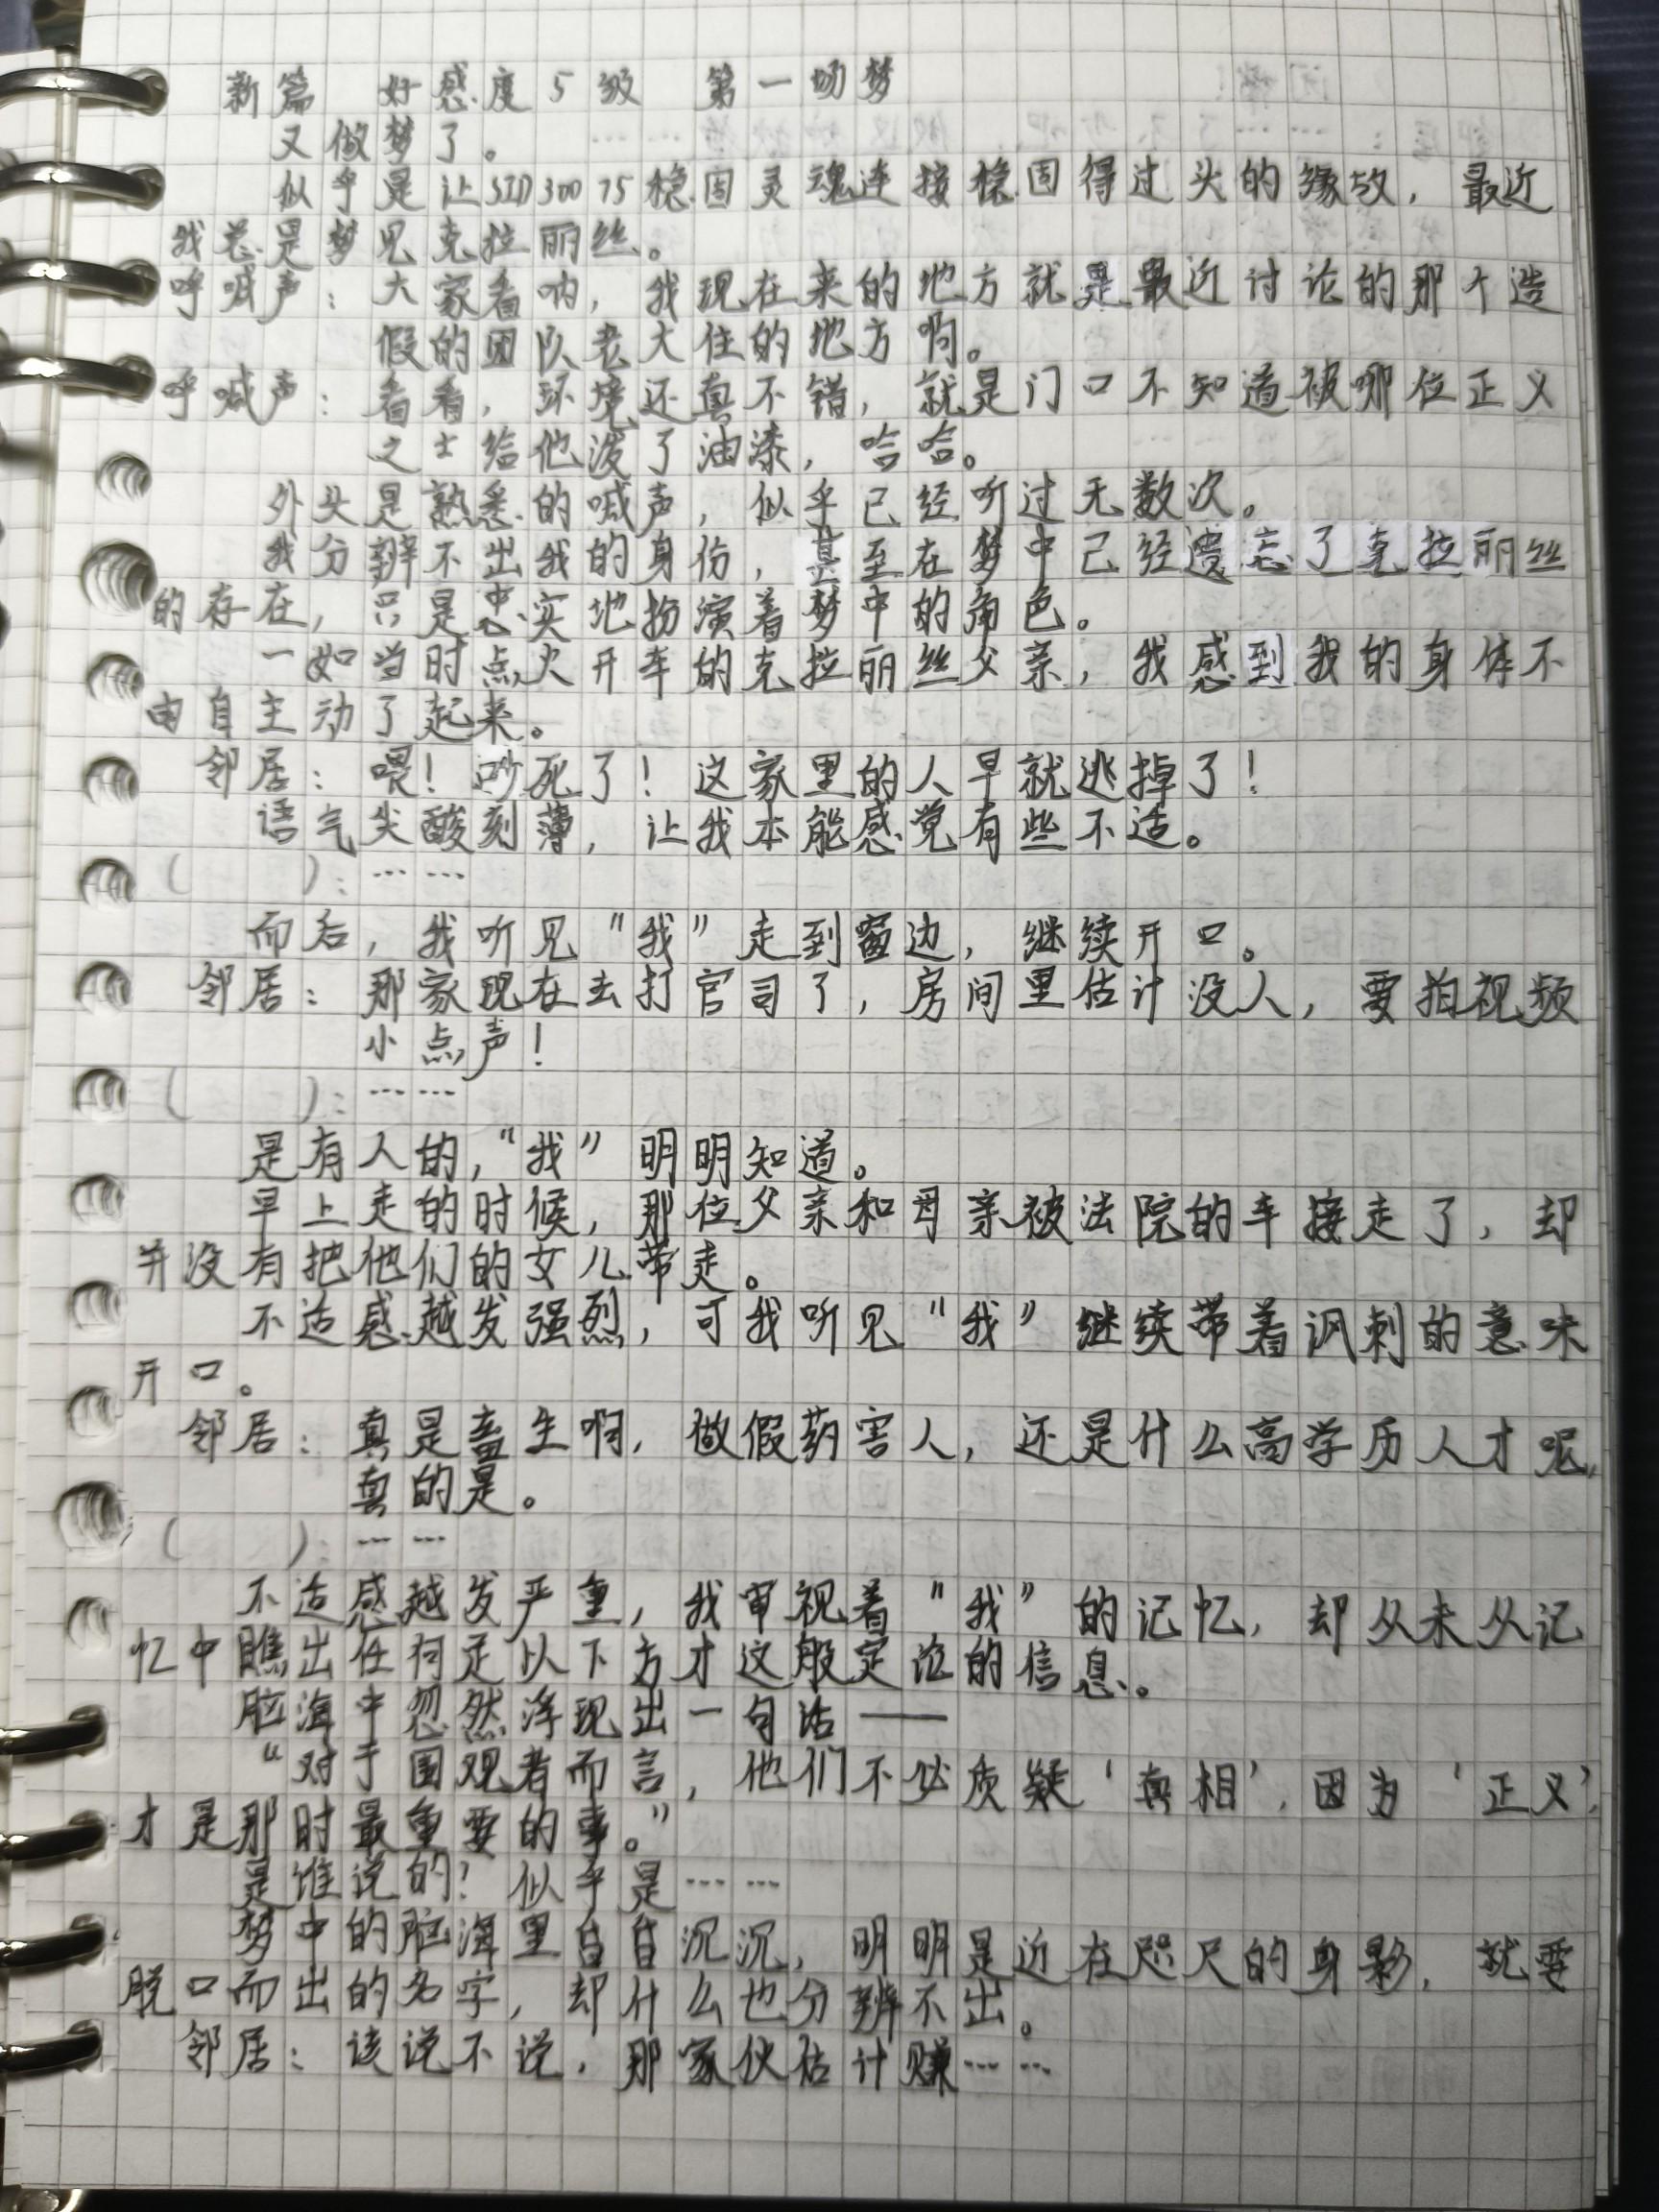 新篇 好感度5级 第一场梦
又做梦了。
似乎是让SID30075稳固灵魂连接稳固得过头的缘故，最近
我总是梦见克拉丽丝。
呼喊声：大家看呐，我现在来的地方就是最近讨论的那个造
假的团队老大住的地方啊。
呼喊声：看看，环境还真不错，就是门口不知道被哪位正义
之士给他泼了油漆，哈哈。
外头是熟悉的喊声，似乎已经听过无数次。
我分辨不出我的身份，甚至在梦中已经遗忘了克拉丽丝
的存在，只是忠实地扮演着梦中的角色。
一如当时点火开车的克拉丽丝父亲，我感到我的身体不
由自主动了起来。
邻居：喂！吵死了！这家里的人早就逃掉了！
语气尖酸刻薄，让我本能感觉有些不适。
（ ）：……
而后，我听见“我”走到窗边，继续开口。
邻居：那家现在去打官司了，房间里估计没人，要拍视频
小点声！
（ ）：……
是有人的，“我”明明知道。
早上走的时候，那位父亲和母亲被法院的车接走了，却
并没有把他们的女儿带走。
不适感越发强烈，可我听见“我”继续带着讽刺的意味
开口。
邻居：真是畜生啊，做假药害人，还是什么高学历人才呢，
真的是。
（ ）：……
不适感越发严重，我审视着“我”的记忆，却从未从记
忆中瞧出任何足以下方才这般定论的信息。
脑海中忽然浮现出一句话——
“对于围观者而言，他们不必质疑‘真相’，因为‘正义’
才是那时最重要的事。”
是谁说的？似乎是……
梦中的脑海里昏昏沉沉，明明是近在咫尺的身影，就要
脱口而出的名字，却什么也分辨不出。
邻居：该说不说，那家伙估计赚……